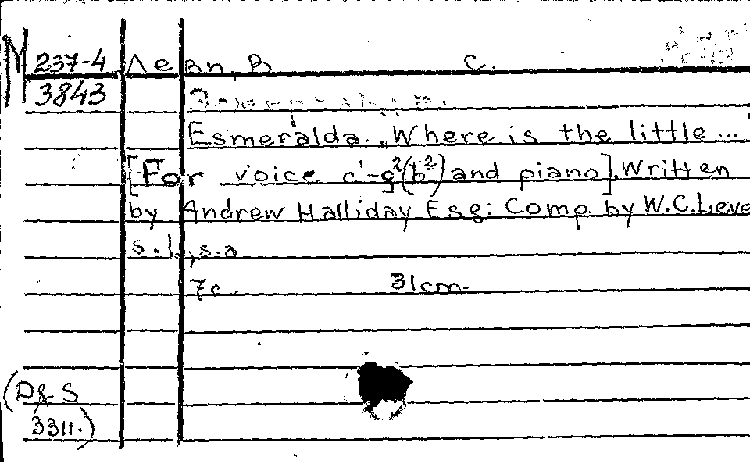 М 237-4 Левп, В. С.
3843
Esmeralda. „Where is the little ...
[For voice c'-g²(b²) and piano]. Written
by Andrew Halliday Esq: Comp. by W.C. Leve
s.l., s.a.
7c. 31cm.
(D&S
3311.)